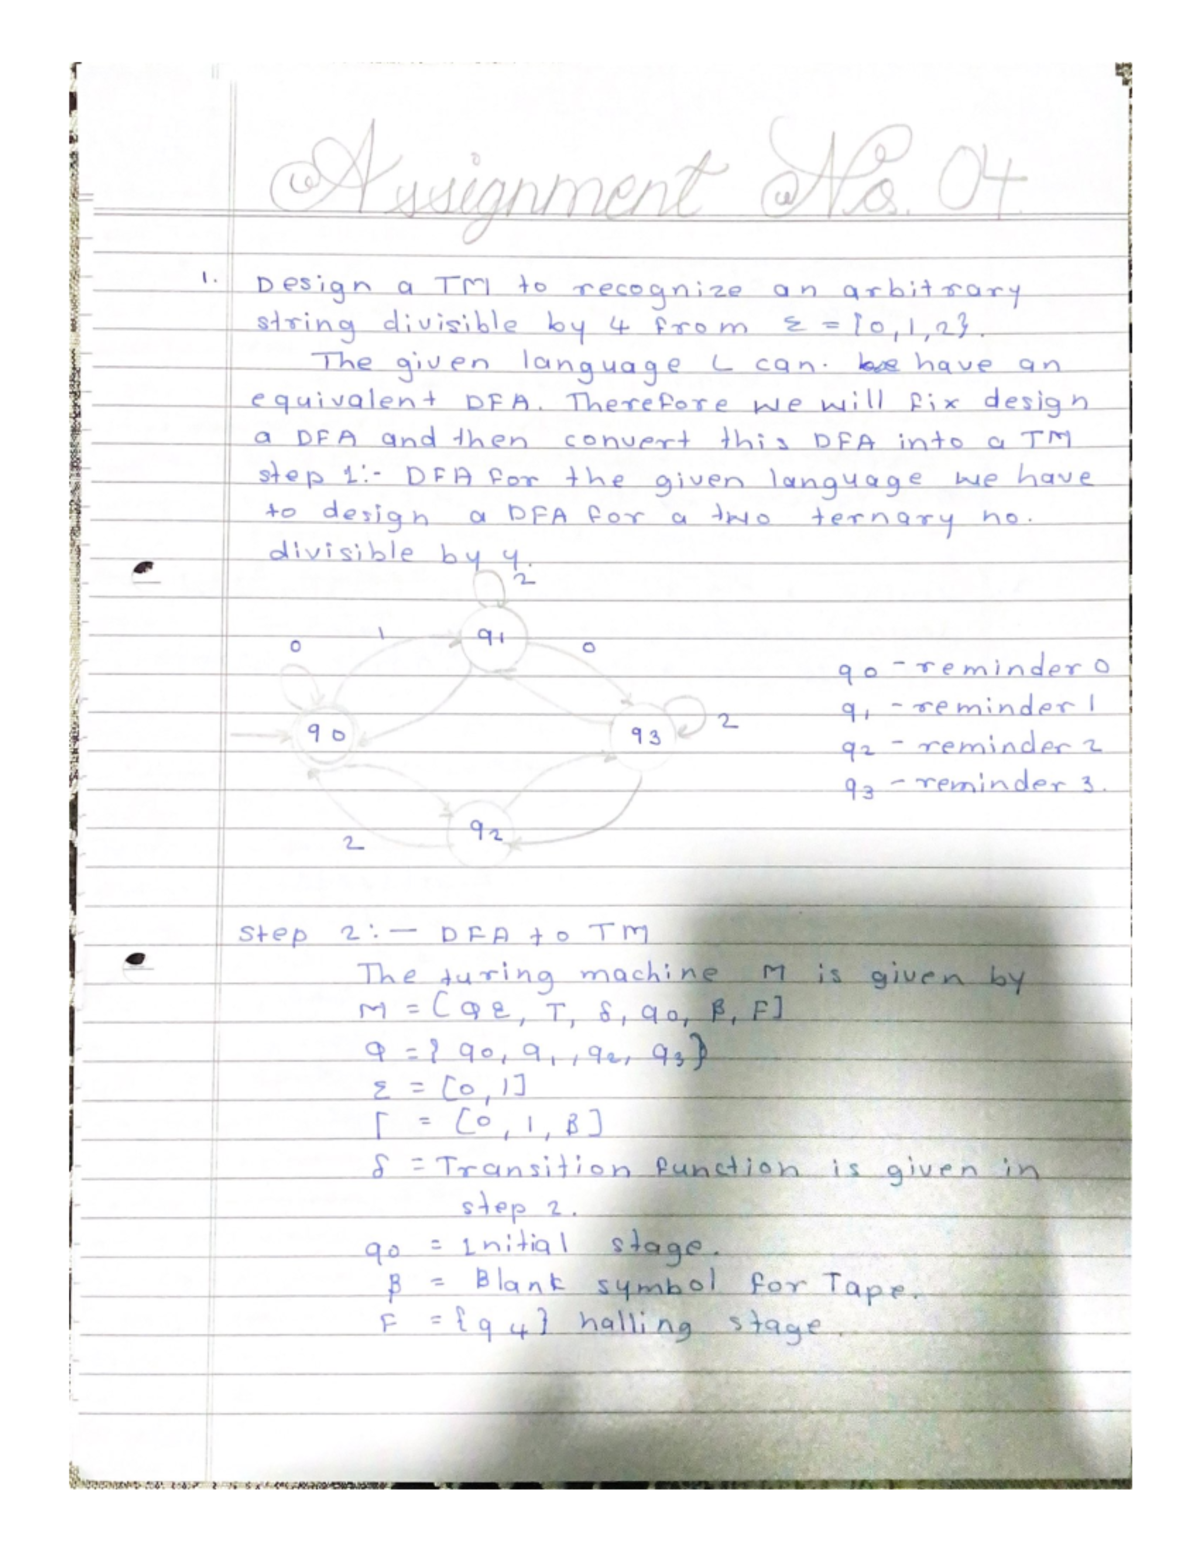 Assignment No. 04
1. Design a TM to recognize an arbitrary
string divisible by 4 from Σ = {0,1,2}.
The given language L can. have an
equivalent DFA. Therefore we will fix design
a DFA and then convert this DFA into a TM
step 1:- DFA for the given language we have
to design a DFA for a two ternary no.
divisible by 4.
2
1
q1
0
0
q0 - reminder 0
q1 - reminder 1
q0
q3
2
q2 - reminder 2
q3 - reminder 3.
q2
2
Step 2:- DFA to TM
The turing machine M is given by
M = [Q Σ, T, δ, q0, B, F]
Q = { q0, q1, q2, q3}
Σ = [0, 1]
Γ = [0, 1, B]
δ = Transition function is given in
step 2.
q0 = Initial stage.
B = Blank symbol for Tape.
F = {q4} halling stage.